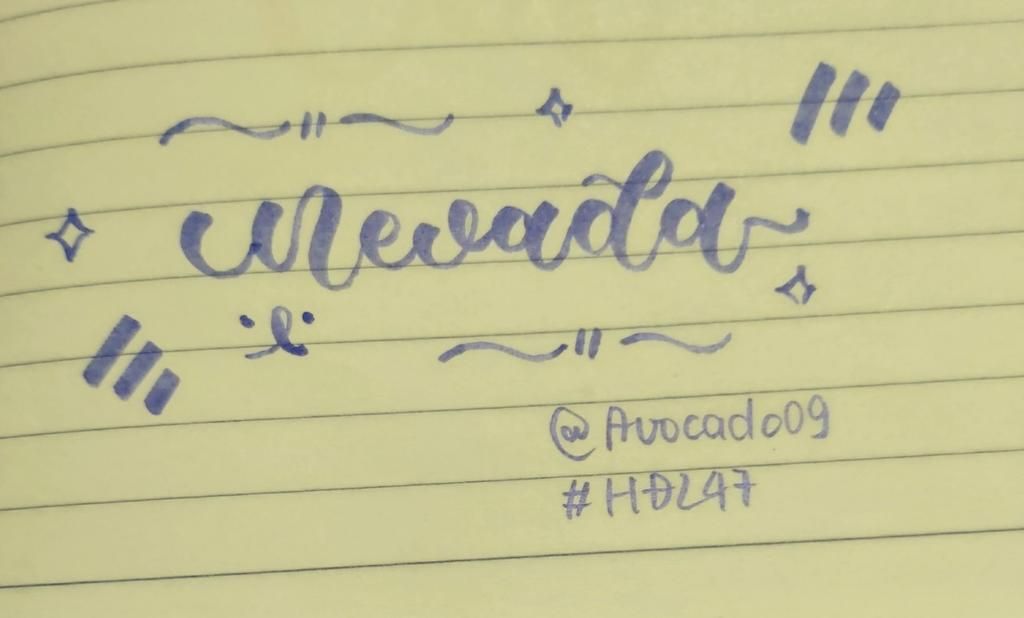 Nevada
@Avocado09
#HĐL47